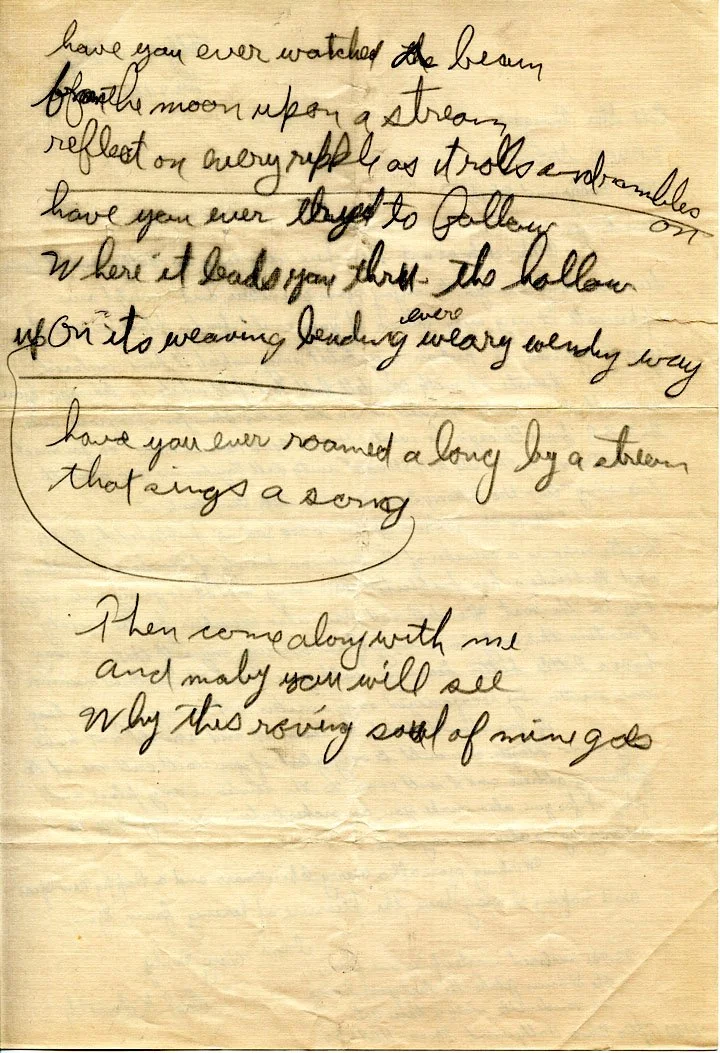 have you ever watched the beam
of the moon upon a stream
reflect on every ripple as it rolls and rambles
on
have you ever tryed to follow
Where it leads you thru the hollow
ever
up On its weaving bending weary wendy way
have you ever roamed a long by a stream
that sings a song
Then come along with me
and maby you will see
Why this roving soul of mine gos